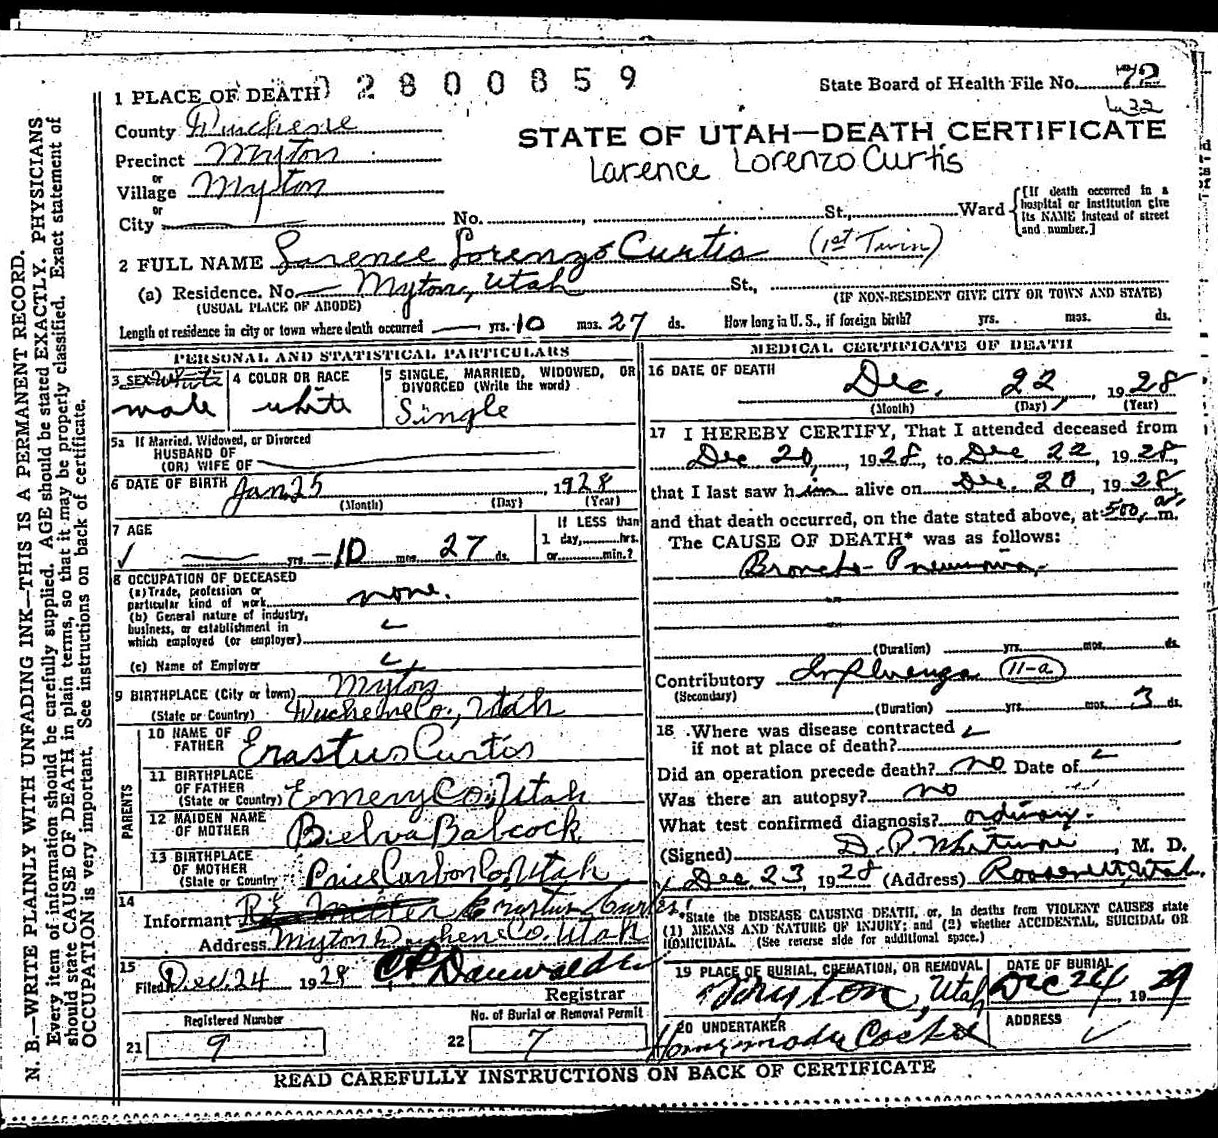 2800859
State Board of Health File No. 72
432
1 PLACE OF DEATH
STATE OF UTAH—DEATH CERTIFICATE
County Duchesne
Larence Lorenzo Curtis
Precinct Myton
or
Village Myton
or
City No. St., Ward
[If death occurred in a hospital or institution give its NAME instead of street and number.]
2 FULL NAME Larence Lorenzo Curtis (1st Twin)
(a) Residence. No. — Myton, Utah St.,
(USUAL PLACE OF ABODE) (IF NON-RESIDENT GIVE CITY OR TOWN AND STATE)
Length of residence in city or town where death occurred — yrs. 10 mos. 27 ds. How long in U. S., if foreign birth? yrs. mos. ds.
PERSONAL AND STATISTICAL PARTICULARS
3 SEX White
male
4 COLOR OR RACE
white
5 SINGLE, MARRIED, WIDOWED, OR
DIVORCED (Write the word)
Single
5a If Married, Widowed, or Divorced
HUSBAND OF
(OR) WIFE OF
6 DATE OF BIRTH Jan 25, 1928
(Month) (Day) (Year)
7 AGE
— yrs. 10 mos. 27 ds.
If LESS than
1 day, hrs.
or min.?
8 OCCUPATION OF DECEASED
(a) Trade, profession or
particular kind of work none.
(b) General nature of industry,
business, or establishment in
which employed (or employer)
(c) Name of Employer
9 BIRTHPLACE (City or town) Myton
(State or Country) Duchesne Co., Utah
PARENTS
10 NAME OF
FATHER Erastus Curtis
11 BIRTHPLACE
OF FATHER
(State or Country) Emery Co., Utah
12 MAIDEN NAME
OF MOTHER Bielva Babcock
13 BIRTHPLACE
OF MOTHER
(State or Country Price, Carbon Co, Utah
14
Informant Erastus Curtis
Address Myton Duchesne Co. Utah
15
Filed Dec. 24 1928
Registrar
Registered Number
21 9
No. of Burial or Removal Permit
22 7
MEDICAL CERTIFICATE OF DEATH
16 DATE OF DEATH
Dec. 22, 1928
(Month) (Day) (Year)
17 I HEREBY CERTIFY, That I attended deceased from
Dec 20, 1928, to Dec 22, 1928,
that I last saw him alive on Dec. 20, 1928,
and that death occurred, on the date stated above, at 500 a m.
The CAUSE OF DEATH* was as follows:
Broncho-Pneumonia
(Duration) yrs. mos. ds.
Contributory Influenza 11-a
(Secondary)
(Duration) yrs. mos. 3 ds.
18 Where was disease contracted
if not at place of death?
Did an operation precede death? no Date of
Was there an autopsy? no
What test confirmed diagnosis? ordinary.
(Signed) D. P. Whitmore, M. D.
Dec 23, 1928 (Address) Roosevelt, Utah.
*State the DISEASE CAUSING DEATH, or, in deaths from VIOLENT CAUSES state
(1) MEANS AND NATURE OF INJURY; and (2) whether ACCIDENTAL, SUICIDAL OR
HOMICIDAL. (See reverse side for additional space.)
19 PLACE OF BURIAL, CREMATION, OR REMOVAL
Myton, Utah
DATE OF BURIAL
Dec 24 1929
20 UNDERTAKER
Homemade Casket
ADDRESS
READ CAREFULLY INSTRUCTIONS ON BACK OF CERTIFICATE
N. B.—WRITE PLAINLY WITH UNFADING INK—THIS IS A PERMANENT RECORD.
Every item of information should be carefully supplied. AGE should be stated EXACTLY. PHYSICIANS
should state CAUSE OF DEATH in plain terms, so that it may be properly classified. Exact statement of
OCCUPATION is very important. See instructions on back of certificate.